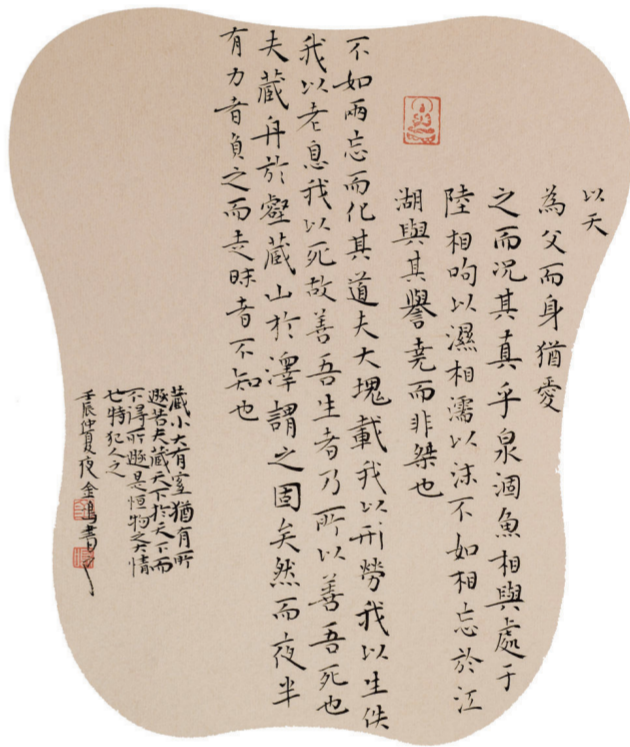 以天
為父而身猶愛
之而况其真乎泉涸魚相與處于
陸相呴以濕相濡以沫不如相忘於江
湖與其譽堯而非桀也
不如兩忘而化其道夫大塊載我以形勞我以生佚
我以老息我以死故善吾生者乃所以善吾死也
夫藏舟於壑藏山於澤謂之固矣然而夜半
有力者負之而走昧者不知也
藏小大有宜猶有所
遯若夫藏天下於天下而
不得所遯是恒物之大情
也特犯人之
壬辰仲夏夜金書